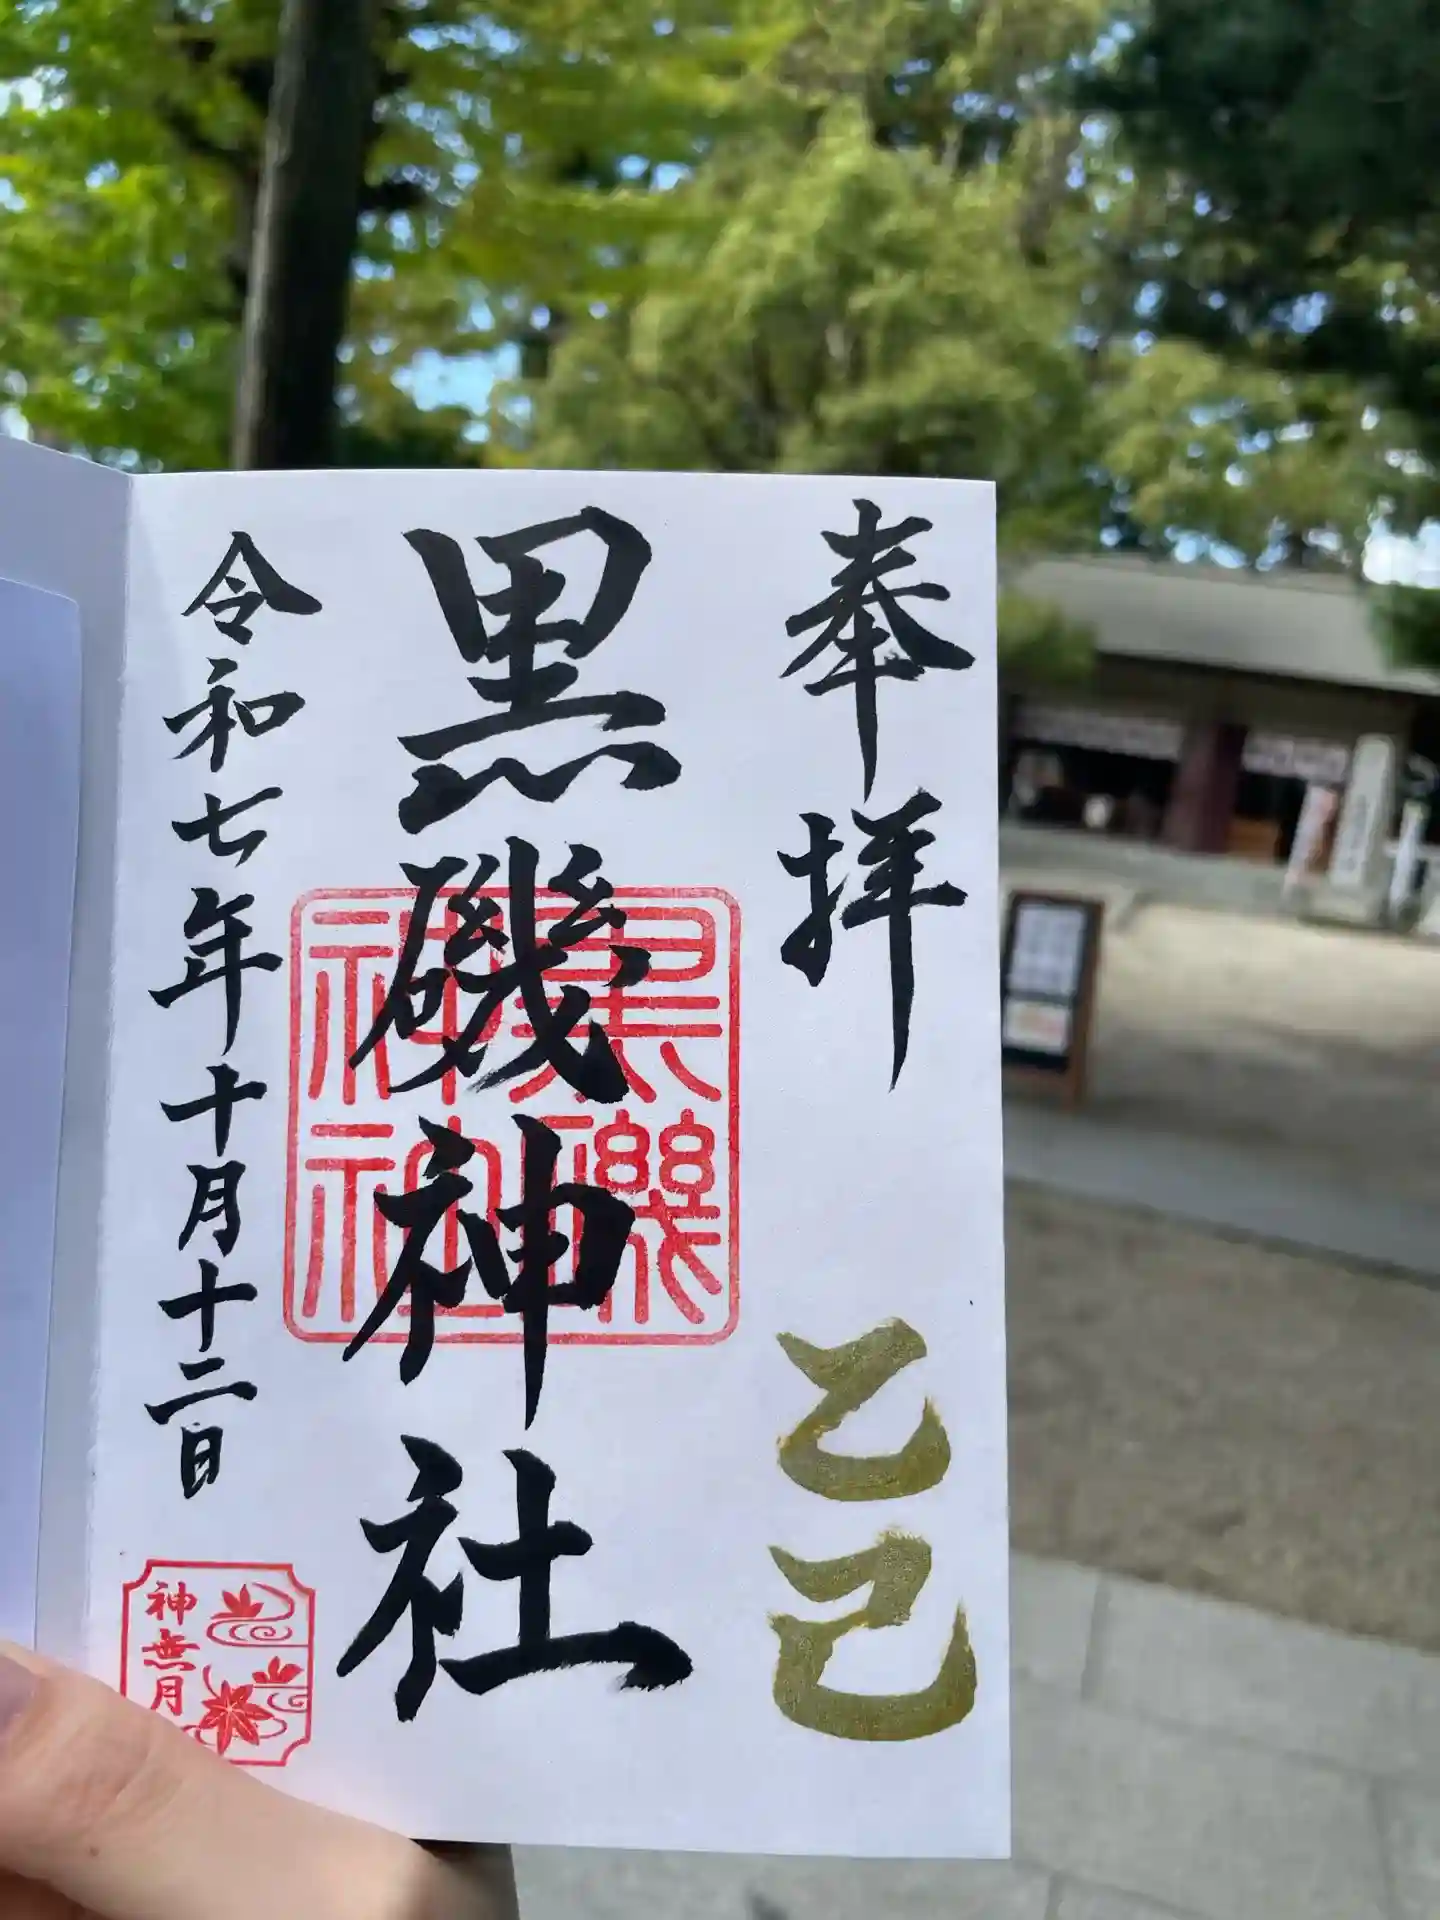 奉拝
乙巳
黒磯神社
黒磯神社
令和七年十月十二日
神無月